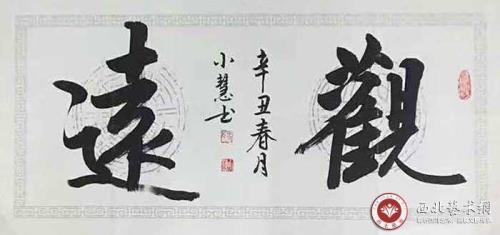 觀遠
辛丑春月
小慧书
西北藝术網